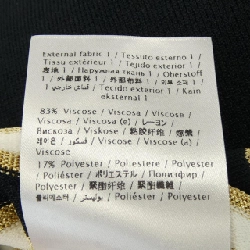 External fabric 1 / Tessuto esterno 1 /
Tissu extérieur 1 / Tejido exterior 1 /
1 / Oberstoff
1 / 外部面料 1 /
/ Tecido exterior 1 / Kain
eksternal 1
83% Viscose / Viscosa / Viscose /
Viscosa / Viscosa (o) / レーヨン /
Вискоза / Viskose / 粘胶纤维 /
/ Viscose / Viscose (a) /
Viscose
17% Polyester / Poliestere / Polyester /
Poliéster / ポリエステル / Полиэфир /
Polyester / 聚酯纤维 / 聚酯纖維 /
폴리에스터 / بوليستر / Poliéster /
Polyester